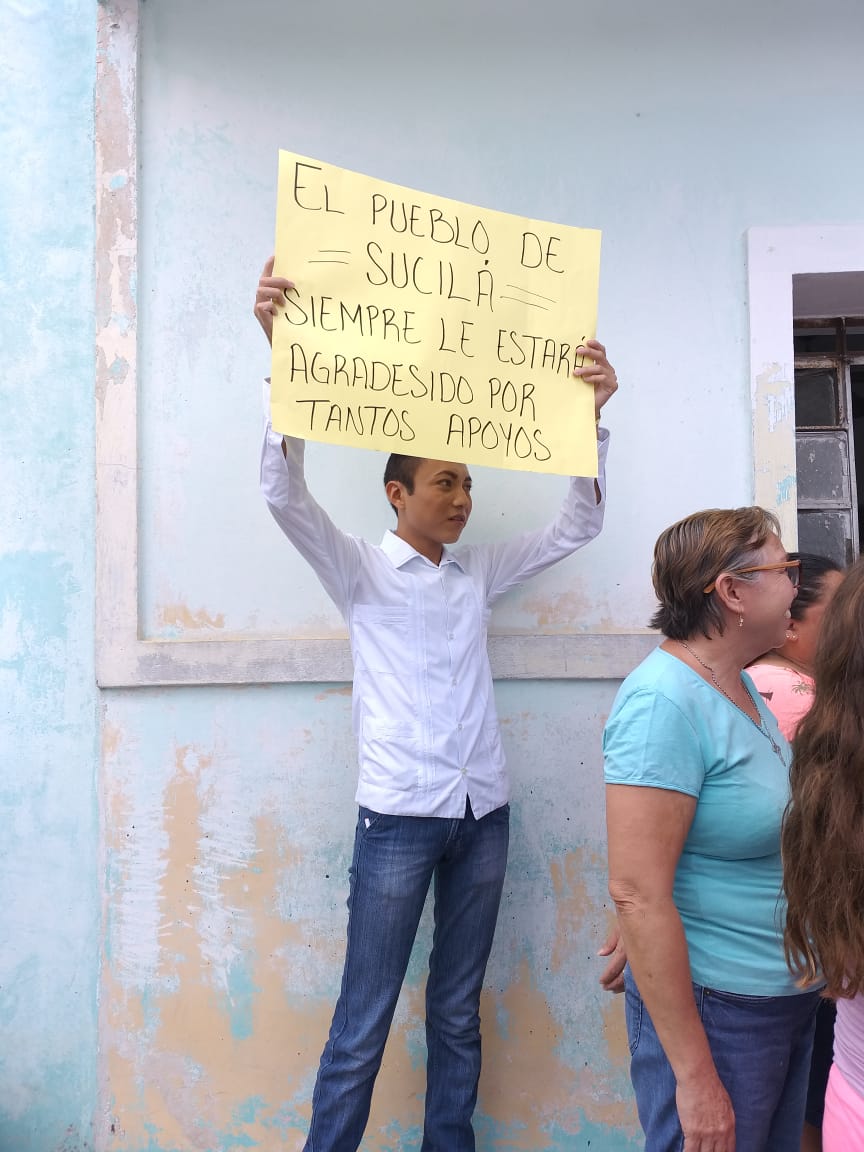 EL PUEBLO DE
= SUCILÁ =
SIEMPRE LE ESTARÁ
AGRADESIDO POR
TANTOS APOYOS